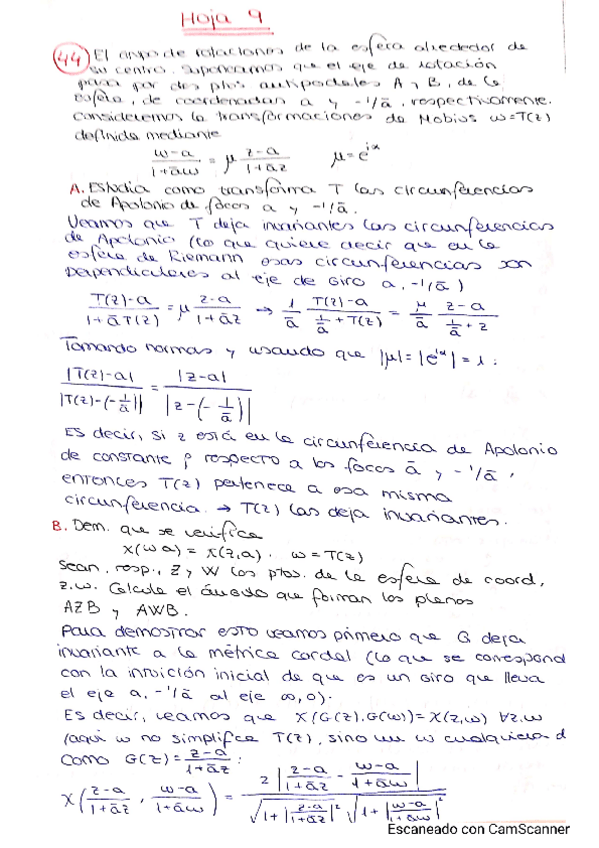 Hoja 9
44 El grupo de rotaciones de la esfera alrededor de
su centro. Supongamos que el eje de rotación
pasa por dos ptos antipodales A y B, de la
esfera, de coordenadas a y -1/ā, respectivamente.
Consideremos la transformaciones de Mobius w=T(z)
definida mediante
(w-a)/(1+āw) = μ (z-a)/(1+āz)   μ=e^{iα}
A. Estudia como transforma T las circunferencias
de Apolonio de focos a y -1/ā.
Veamos que T deja invariantes las circunferencias
de Apolonio (lo que quiere decir que en la
esfera de Riemann esas circunferencias son
perpendiculares al eje de giro a, -1/ā)
(T(z)-a)/(1+āT(z)) = μ (z-a)/(1+āz) → (1/ā) (T(z)-a)/(1/ā+T(z)) = (μ/ā) (z-a)/(1/ā+z)
Tomando normas y usando que |μ|=|e^{iα}|=1:
|T(z)-a|/|T(z)-(-1/ā)| = |z-a|/|z-(-1/ā)|
Es decir, si z está en la circunferencia de Apolonio
de constante ρ respecto a los focos ā y -1/ā,
entonces T(z) pertenece a esa misma
circunferencia. → T(z) las deja invariantes.
B. Dem. que se verifica
χ(w,a) = χ(z,a). w=T(z)
Sean, resp., Z y W los ptos. de la esfera de coord,
z,w. Calcule el ángulo que forman los planos
AZB y AWB.
Para demostrar esto veamos primero que G deja
invariante a la métrica cordal (lo que se correspond
con la intuición inicial de que es un giro que lleva
el eje a, -1/ā al eje ∞,0).
Es decir, veamos que χ(G(z),G(w))=χ(z,w) ∀z,w
(aquí w no simplifica T(z), sino un w cualquiera d
Como G(z)=(z-a)/(1+āz):
χ((z-a)/(1+āz), (w-a)/(1+āw)) = 2|(z-a)/(1+āz) - (w-a)/(1+āw)| / (√(1+|(z-a)/(1+āz)|²) √(1+|(w-a)/(1+āw)|²))
Escaneado con CamScanner